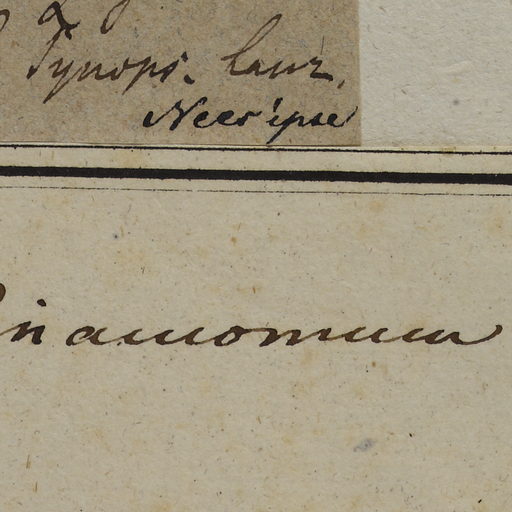 Synops. Laur.
Nees ipse
inamomum